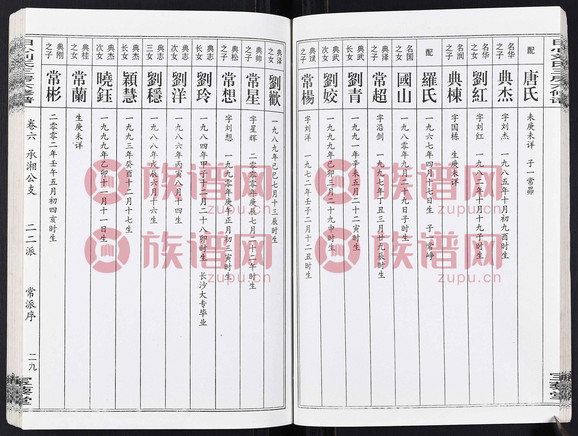 配 唐氏 庚未详 子一 常茆
名华之子 典杰 字刘杰 一九八五年十月初九酉时生
名华之女 劉紅 字刘红 一九八二年十月十九子时生
名润之子 典棟 字国栋 生庚未详
配 羅氏 一九六七年四月十七日生 子一 常峰
名国之女 國山 一九九〇年九月二十九日子时生
典泽之子 常超 字沿剑 一九八七年丁卯三月廿九辰时生
典武长女 劉青 一九九一年辛未五月二十二寅时生
典武次女 劉姣 一九九九年己卯三月二十九申时生
典斌之子 常楊 字刘洋 一九七二年壬子二月十二丑时生
典泽之女 劉歡 一九八九年己巳七月十三辰时生
典帅之子 常星 字星辉 二〇〇〇年庚辰七月二十二年时生
典松之子 常想 字刘想 一九九〇年庚午正月初三寅时生
典志长女 劉玲 一九八四年甲子十二月二十八卯时生 长沙大专毕业
典志次女 劉洋 一九八六年丙寅八月十四生
典志三女 劉穩 一九八八年戊辰六月十六生
典杰长女 穎慧 一九九三年癸酉十二月十七生
典杰次女 曉鈺 一九九九年乙卯十一月十一日生
典桂之女 常蘭 生庚未详
典刚之子 常彬 二〇〇二年壬午五月初四亥时生
卷六 承湘公支 二二派 常派序 二九
族谱网
zupu.cn
族谱网
zupu.cn